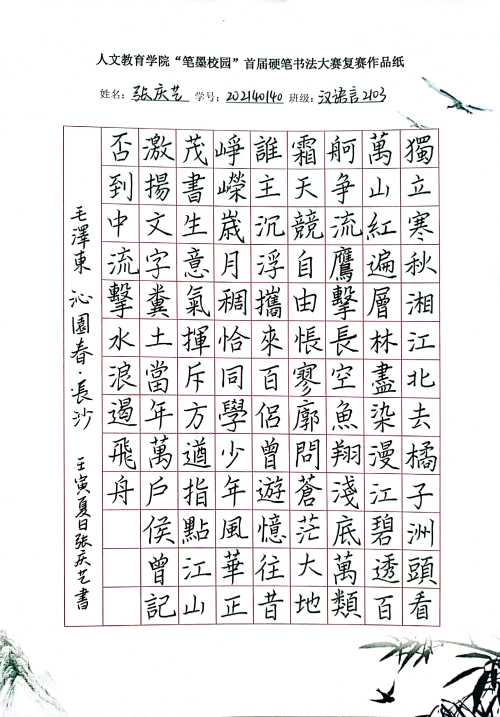 人文教育学院“笔墨校园”首届硬笔书法大赛复赛作品纸
姓名：张庆艺 学号：202140140 班级：汉语言2103
獨立寒秋湘江北去橘子洲頭看
萬山紅遍層林盡染漫江碧透百
舸争流鷹擊長空魚翔淺底萬類
霜天競自由悵寥廓問蒼茫大地
誰主沉浮攜來百侶曾遊憶往昔
崢嶸歲月稠恰同學少年風華正
茂書生意氣揮斥方遒指點江山
激揚文字糞土當年萬戶侯曾記
否到中流擊水浪遏飛舟
毛澤東 沁園春·長沙 壬寅夏日张庆艺書